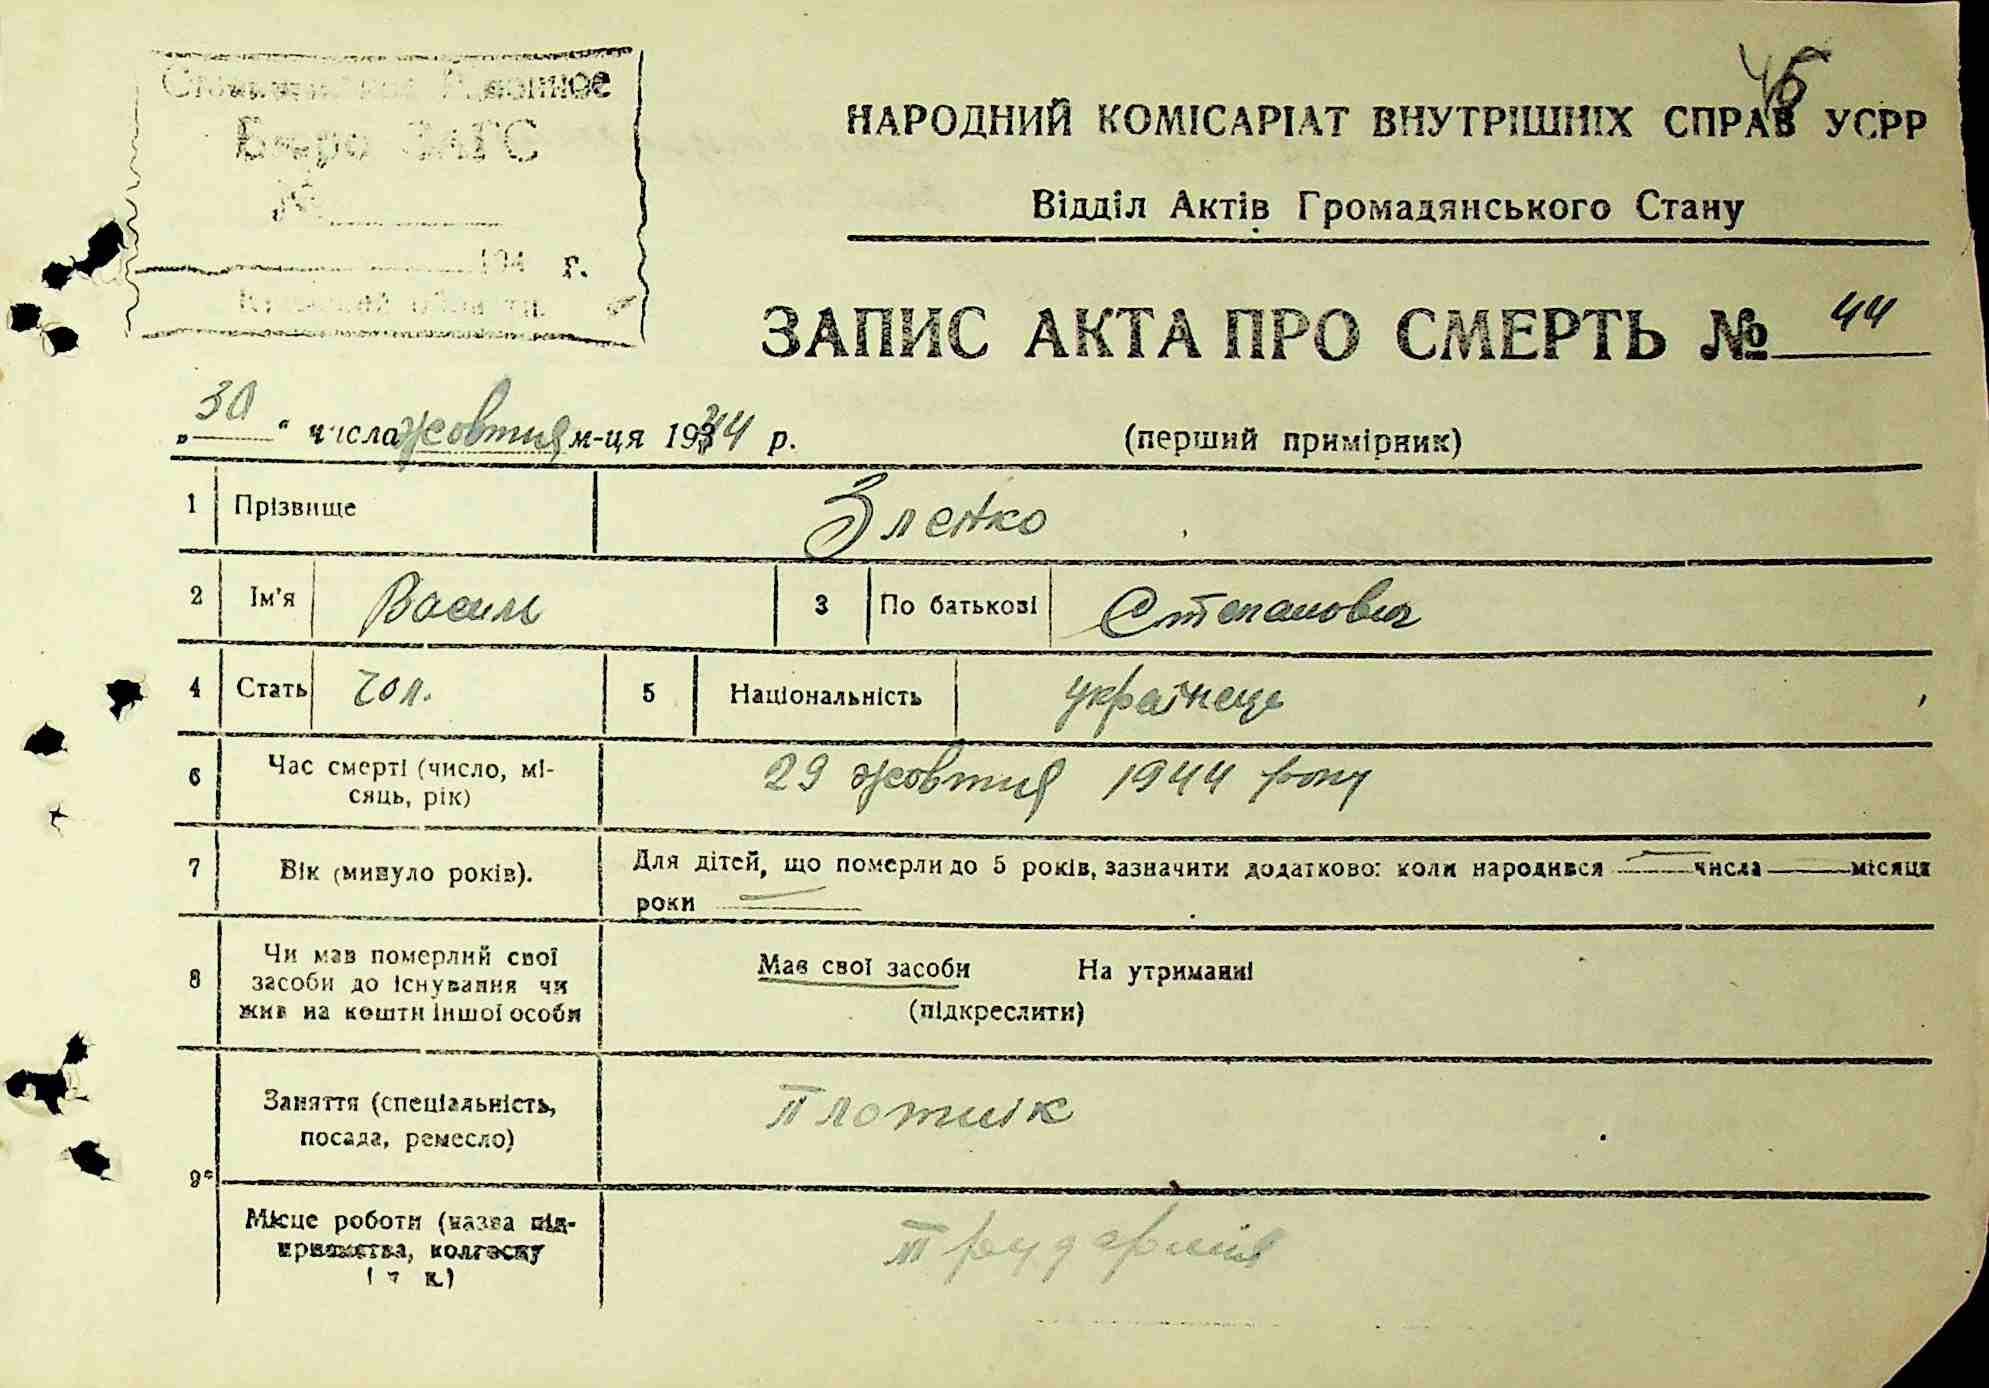 Районное
Бюро ЗАГС
№
194 г.
45
НАРОДНИЙ КОМІСАРІАТ ВНУТРІШНІХ СПРАВ УСРР
Відділ Актів Громадянського Стану
ЗАПИС АКТА ПРО СМЕРТЬ № 44
„30“ числа жовтня м-ця 1944 р. (перший примірник)
1 Прізвище Зленко
2 Ім'я Василь 3 По батькові Степанович
4 Стать чол. 5 Національність українець
6 Час смерті (число, мі-
сяць, рік) 29 жовтня 1944 року
7 Вік (минуло років). Для дітей, що померли до 5 років, зазначити додатково: коли народився — числа — місяця
роки —
8 Чи мав померлий свої
засоби до існування чи
жив на кошти іншої особи
Має свої засоби На утриманні
(підкреслити)
9 Заняття (спеціальність,
посада, ремесло) Плотнік
Місце роботи (назва під-
приємства, колгоспу
і т. к.) Трудармія